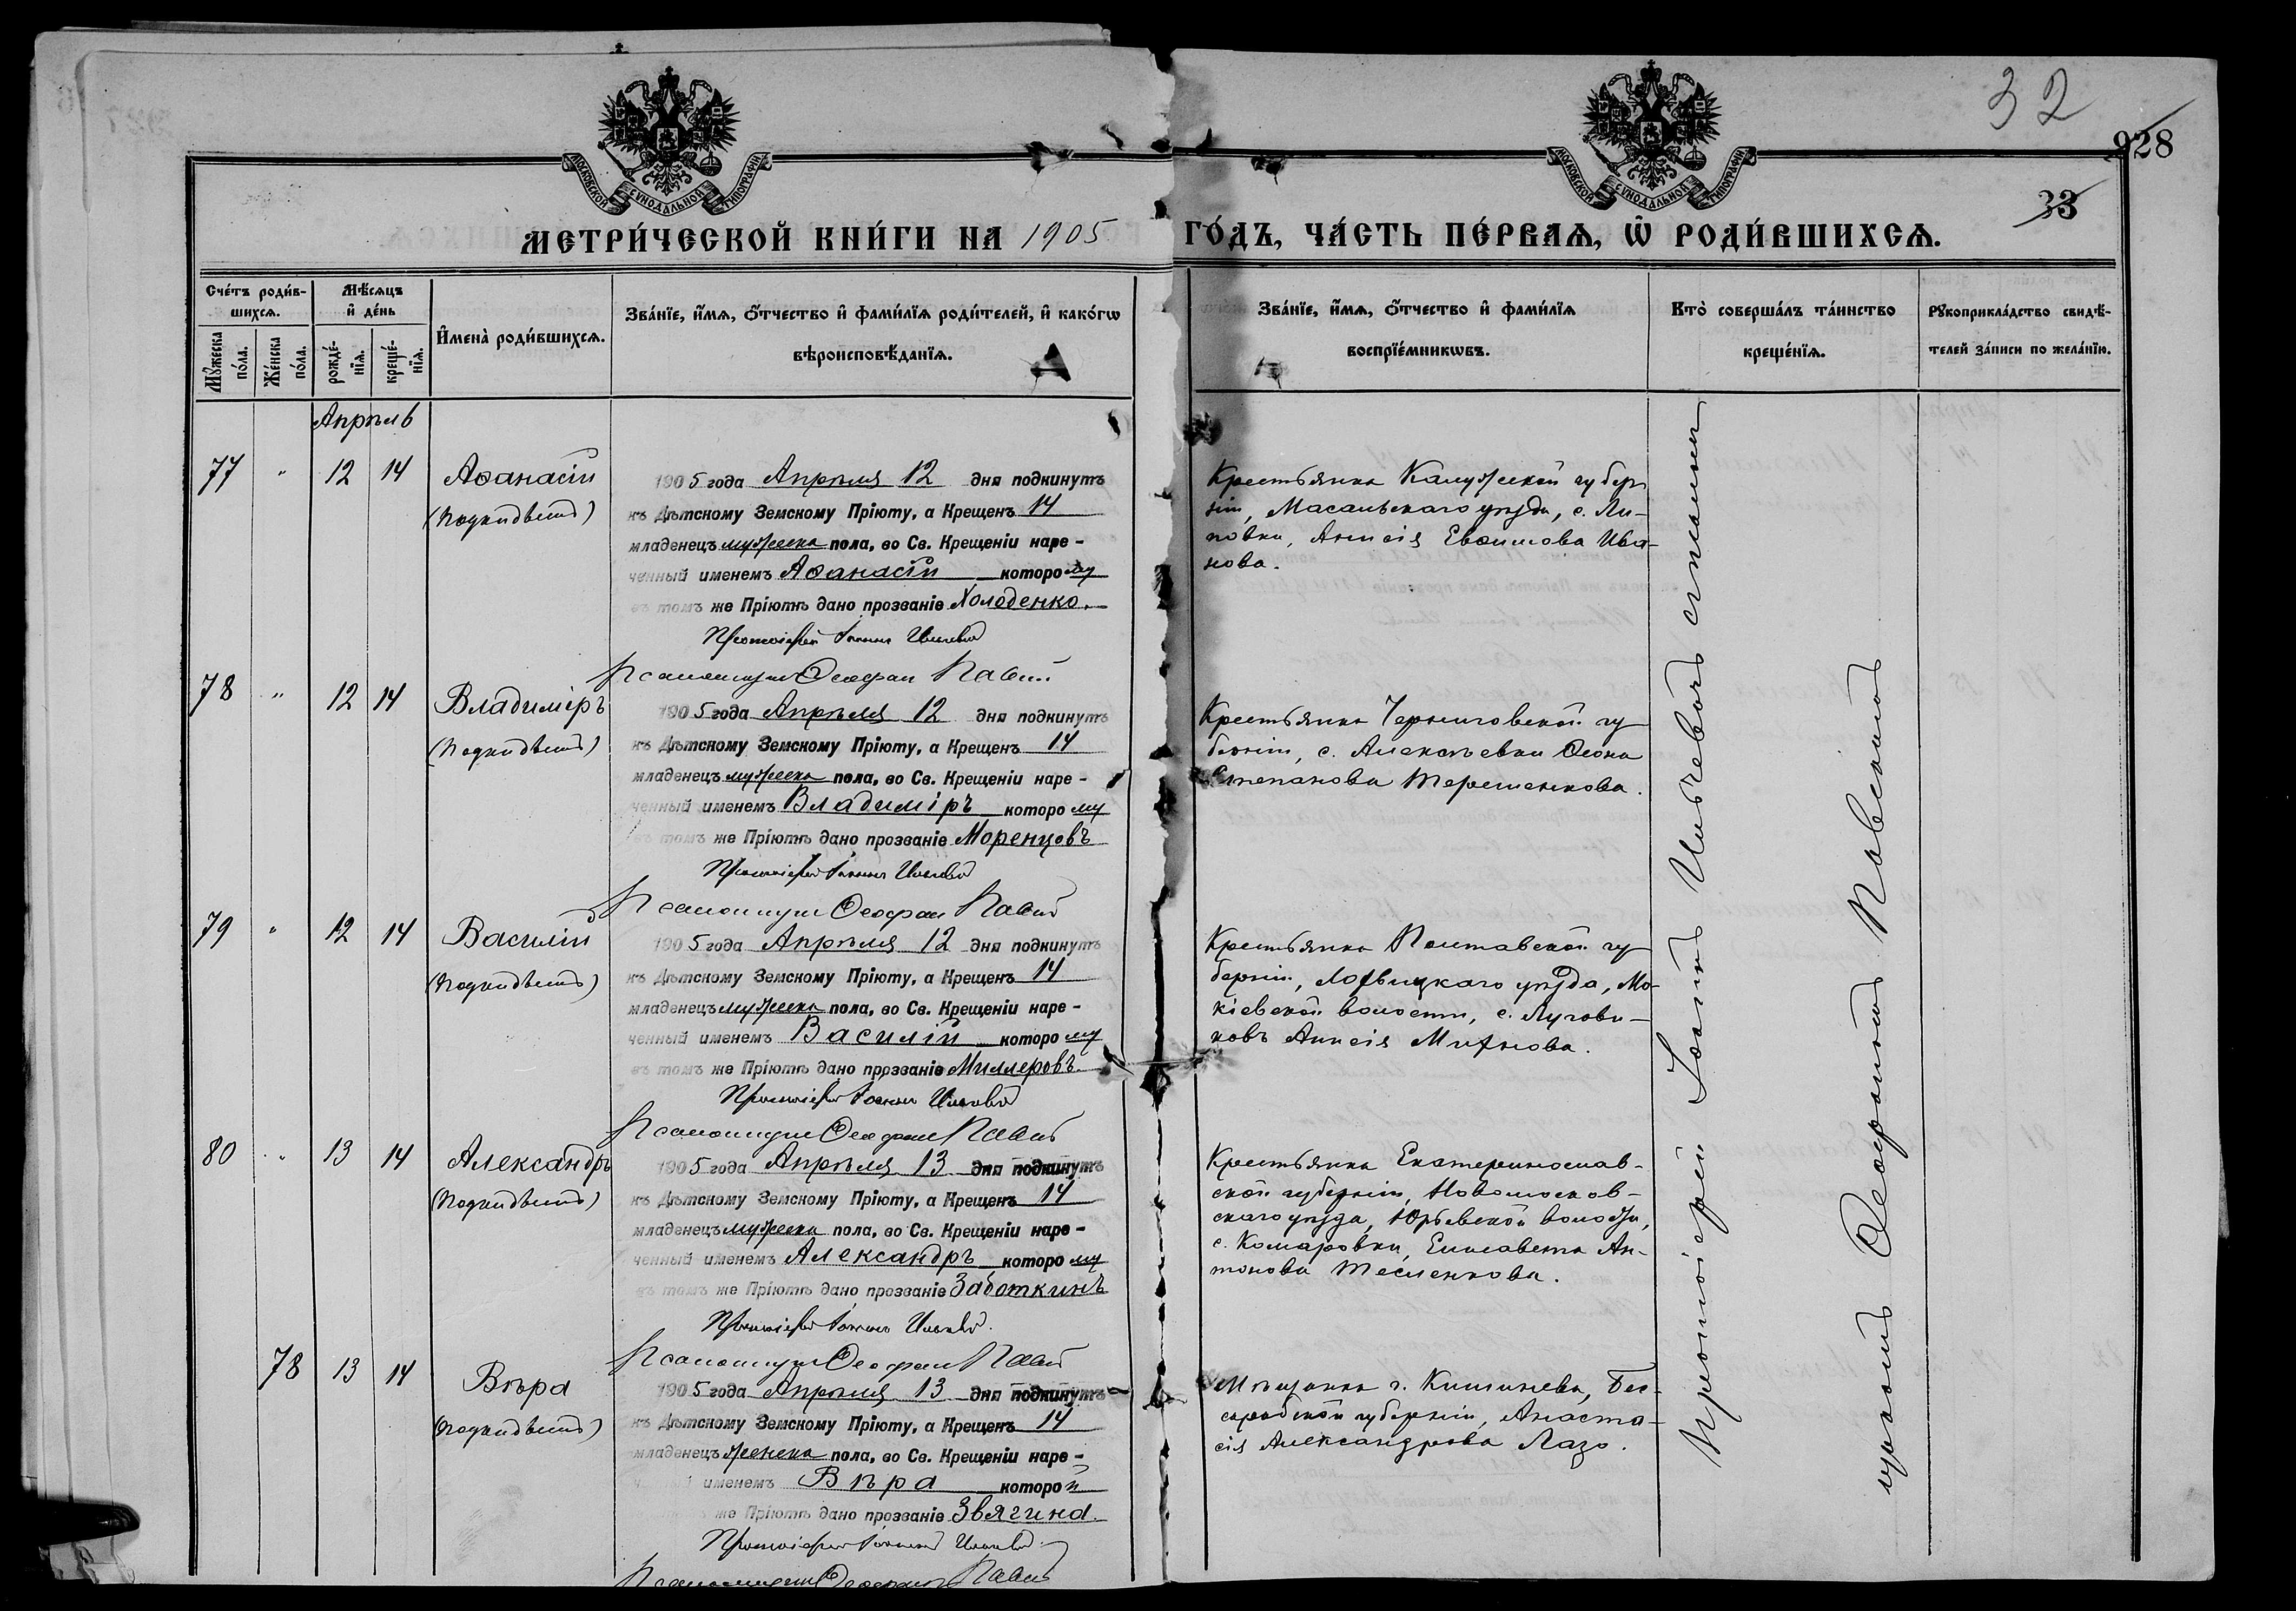 32
928
33
МОСКОВСКОЙ СУНОДАЛЬНОЙ ТИПОГРАФІИ
МОСКОВСКОЙ СУНОДАЛЬНОЙ ТИПОГРАФІИ
МЕТРИ́ЧЕСКОЙ КНИ́ГИ НА 1905 ГО́ДЪ, ЧА́СТЬ ПЕ́РВАѦ, Ѡ РОДИ́ВШИХСѦ.
Сче́тъ роди́в-
шихсѧ.
Мꙋжеска по́ла.
Же́нска по́ла.
Мѣ́сѧцъ
и҆ де́нь
рожде́-
нїѧ.
креще́-
нїѧ.
И҆мена̀ роди́вшихсѧ.
Зва́нїе, и҆́мѧ, ѻ҆́тчество и҆ фами́лїѧ роди́телей, и҆ како́гѡ
вѣроисповѣ́данїѧ.
Зва́нїе, и҆́мѧ, ѻ҆́тчество и҆ фами́лїѧ
воспрїе́мникѡвъ.
Кто̀ соверша́лъ та́инство
креще́нїѧ.
Рꙋкоприкла́дство свидѣ́-
телей за́писи по жела́нїю.
Апрѣль
77 " 12 14 Аѳанасій
(Подкидышъ)
1905 года Апрѣля 12 дня подкинутъ
къ Дѣтскому Земскому Пріюту, а Крещенъ 14
младенецъ мужеска пола, во Св. Крещеніи наре-
ченный именемъ Аѳанасій которому
въ томъ же Пріютѣ дано прозваніе Холоденко.
Протоіерей Іоаннъ
Псаломщикъ Ѳеофанъ
Крестьянка Калужской губер
ніи, Масальскаго уѣзда, с. Ли-
повки, Анисія Евѳимова Ива-
нова.
78 " 12 14 Владиміръ
(Подкидышъ)
1905 года Апрѣля 12 дня подкинутъ
къ Дѣтскому Земскому Пріюту, а Крещенъ 14
младенецъ мужеска пола, во Св. Крещеніи наре-
ченный именемъ Владиміръ которому
въ томъ же Пріютѣ дано прозваніе Моренцовъ
Протоіерей Іоаннъ
Псаломщикъ Ѳеофанъ
Крестьянка Черниговской гу
берніи, с. Алексѣевки Ѳеона
Степанова Терещенкова.
79 " 12 14 Василій
(Подкидышъ)
1905 года Апрѣля 12 дня подкинутъ
къ Дѣтскому Земскому Пріюту, а Крещенъ 14
младенецъ мужеска пола, во Св. Крещеніи наре-
ченный именемъ Василій которому
въ томъ же Пріютѣ дано прозваніе Миллеровъ.
Протоіерей Іоаннъ
Псаломщикъ Ѳеофанъ
Крестьянка Полтавской гу
берніи, Лохвицкаго уѣзда, Мо-
кіевской волости, с. Лугови-
ковъ Анисія
80 " 13 14 Александръ
(Подкидышъ)
1905 года Апрѣля 13 дня подкинутъ
къ Дѣтскому Земскому Пріюту, а Крещенъ 14
младенецъ мужеска пола, во Св. Крещеніи наре-
ченный именемъ Александръ которому
въ томъ же Пріютѣ дано прозваніе Заботкинъ
Протоіерей Іоаннъ
Псаломщикъ Ѳеофанъ
Крестьянка Екатеринослав-
ской губерніи, Новомосков-
скаго уѣзда, Юрьевской волости,
с. Комаровки, Елисавета Ан-
тонова Тесленкова.
78 13 14 Вѣра
(Подкидышъ)
1905 года Апрѣля 13 дня подкинутъ
къ Дѣтскому Земскому Пріюту, а Крещенъ 14
младенецъ женска пола, во Св. Крещеніи наре-
именемъ Вѣра которой
же Пріютѣ дано прозваніе Звягина.
Протоіерей Іоаннъ
Псаломщикъ Ѳеофанъ
Мѣщанка г. Кишинева, Бес-
сарабской губерніи, Анаста-
сія Александрова Лазо.
Протоіерей Іоаннъ
Ѳеофаномъ